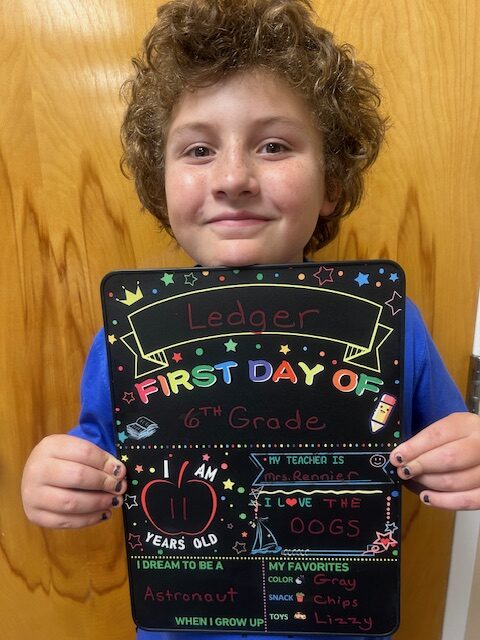 Ledger
FIRST DAY OF
6TH Grade
I AM
11
YEARS OLD
MY TEACHER IS
Mrs. Rennier
I L VE THE
DOGS
I DREAM TO BE A
Astronaut
WHEN I GROW UP
MY FAVORITES
COLOR Gray
SNACK Chips
TOYS Lizzy